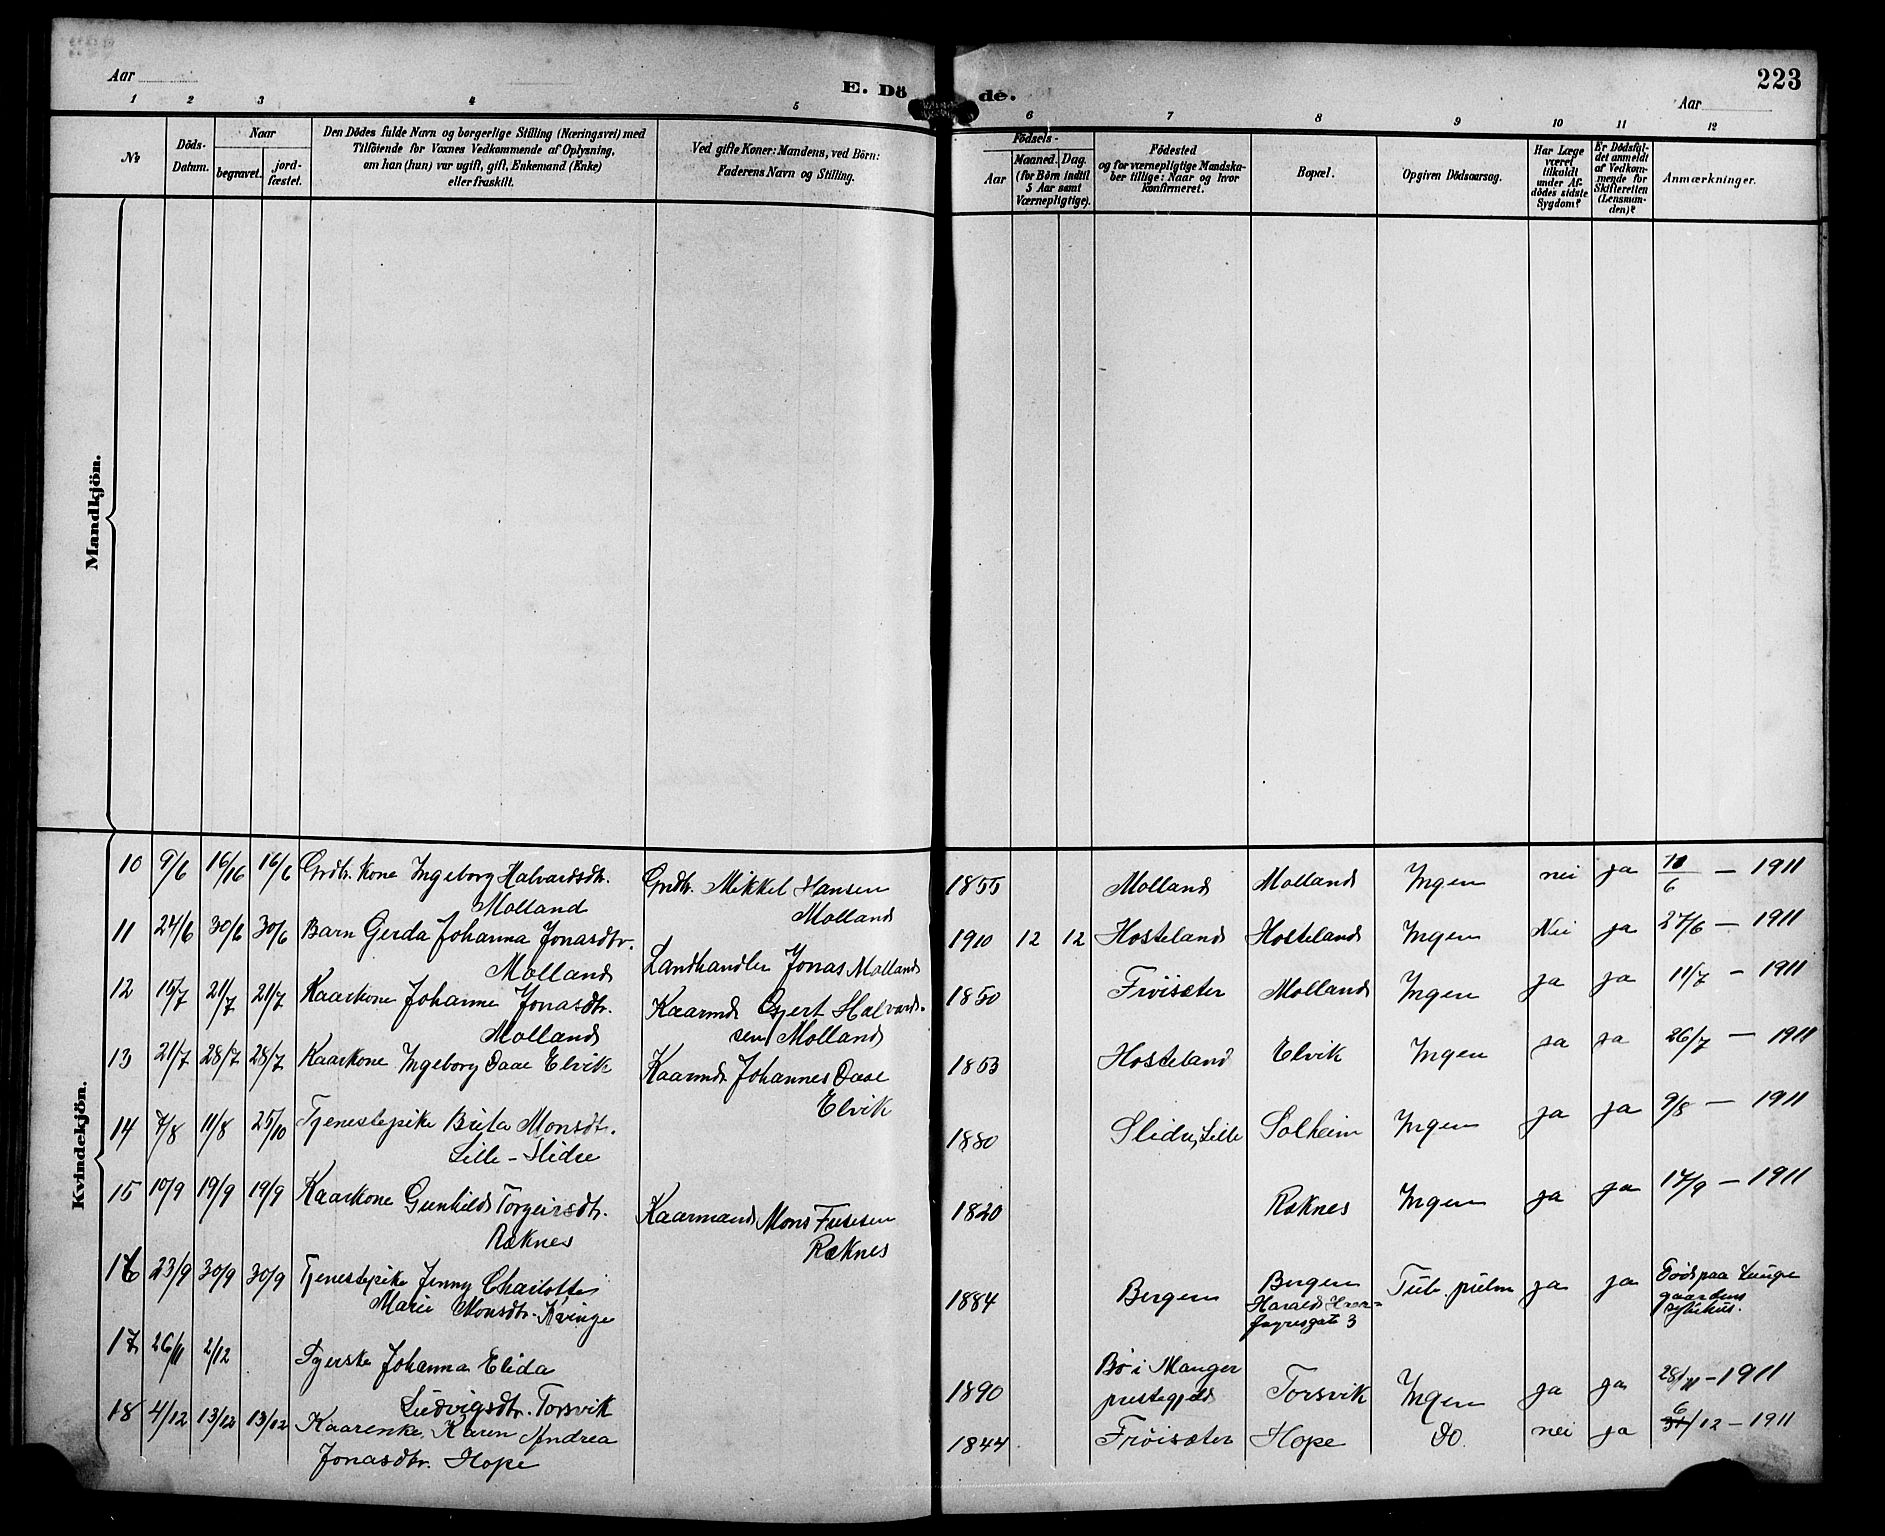 Aar
E. Dö
de.
223
Aar
1 2 3 4 5 6 7 8 9 10 11 12
№
Döds-
Datum.
Naar
begravet.
jord-
fæstet.
Den Dödes fulde Navn og borgerlige Stilling (Næringsvei) med
Tilföiende for Voxnes Vedkommende af Oplysning,
om han (hun) var ugift, gift, Enkemand (Enke)
eller fraskilt.
Ved gifte Koner: Mandens, ved Börn:
Faderens Navn og Stilling.
Födsels-
Aar
Maaned. Dag.
(for Börn indtil
5 Aar samt
Værnepligtige).
Födested
og for værnepligtige Mandska-
ber tillige: Naar og hvor
konfirmeret.
Bopæl.
Opgiven Dödsaarsag.
Har Læge
været
tilkaldt
under Af-
dödes sidste
Sygdom?
Er Dödsfal-
det anmeldt
af Vedkom-
mende for
Skifteretten
(Lensman-
den)?
Anmærkninger.
Mandkjön.
Kvindekjön.
10 9/6 16/16 16/6 Grdbr. Kone Ingeborg Halvardsdtr.
Molland
Grdbr. Mikkel Hansen
Molland
1855 Molland Molland Ingen nei ja 11/6 — 1911
11 24/6 30/6 30/6 Barn Gerda Johanna Jonasdtr.
Molland
Landhandler Jonas Molland
1910 12 12 Hosteland Hosteland Ingen Nei ja 27/6 — 1911
12 15/7 21/7 21/7 Kaarkone Johanne Jonasdtr.
Molland
Kaarmd. Halvard-
sen Molland
1850 Frøisæter Molland Ingen ja ja 11/7 — 1911
13 21/7 28/7 28/7 Kaarkone Ingeborg Daae Elvik
Kaarmd. Johannes Daae
Elvik
1853 Hosteland Elvik Ingen ja ja 26/7 — 1911
14 7/8 11/8 25/10 Tjenestepike Brita Monsdtr.
Lille-Slidre
1880 Slidre, Lille Solheim Ingen ja ja 9/8 — 1911
15 10/9 19/9 19/9 Kaarkone Gunhild Torgeirsdtr.
Ræknes
Kaarmand Mons
Ræknes
1820 Ræknes Ingen ja ja 17/9 — 1911
16 23/9 30/9 30/9 Tjenestepike Jenny Charlotte
Marie Monsdtr. Kvinge
1884 Bergen Bergen
Harald Haar-
fagresgate 3
Tub. pulm ja ja Død paa Lunge
gaardens
sykehus.
17 26/11 2/12 Johanna Elida
Ludvigsdtr. Torsvik
1890 Bø i Manger
prestegjeld
Torsvik Ingen ja ja 28/11 — 1911
18 4/12 13/12 13/12 Kaarenke Karen Andrea
Jonasdtr. Hope
1844 Frøisæter Hope Do. nei ja 6/12 — 1911